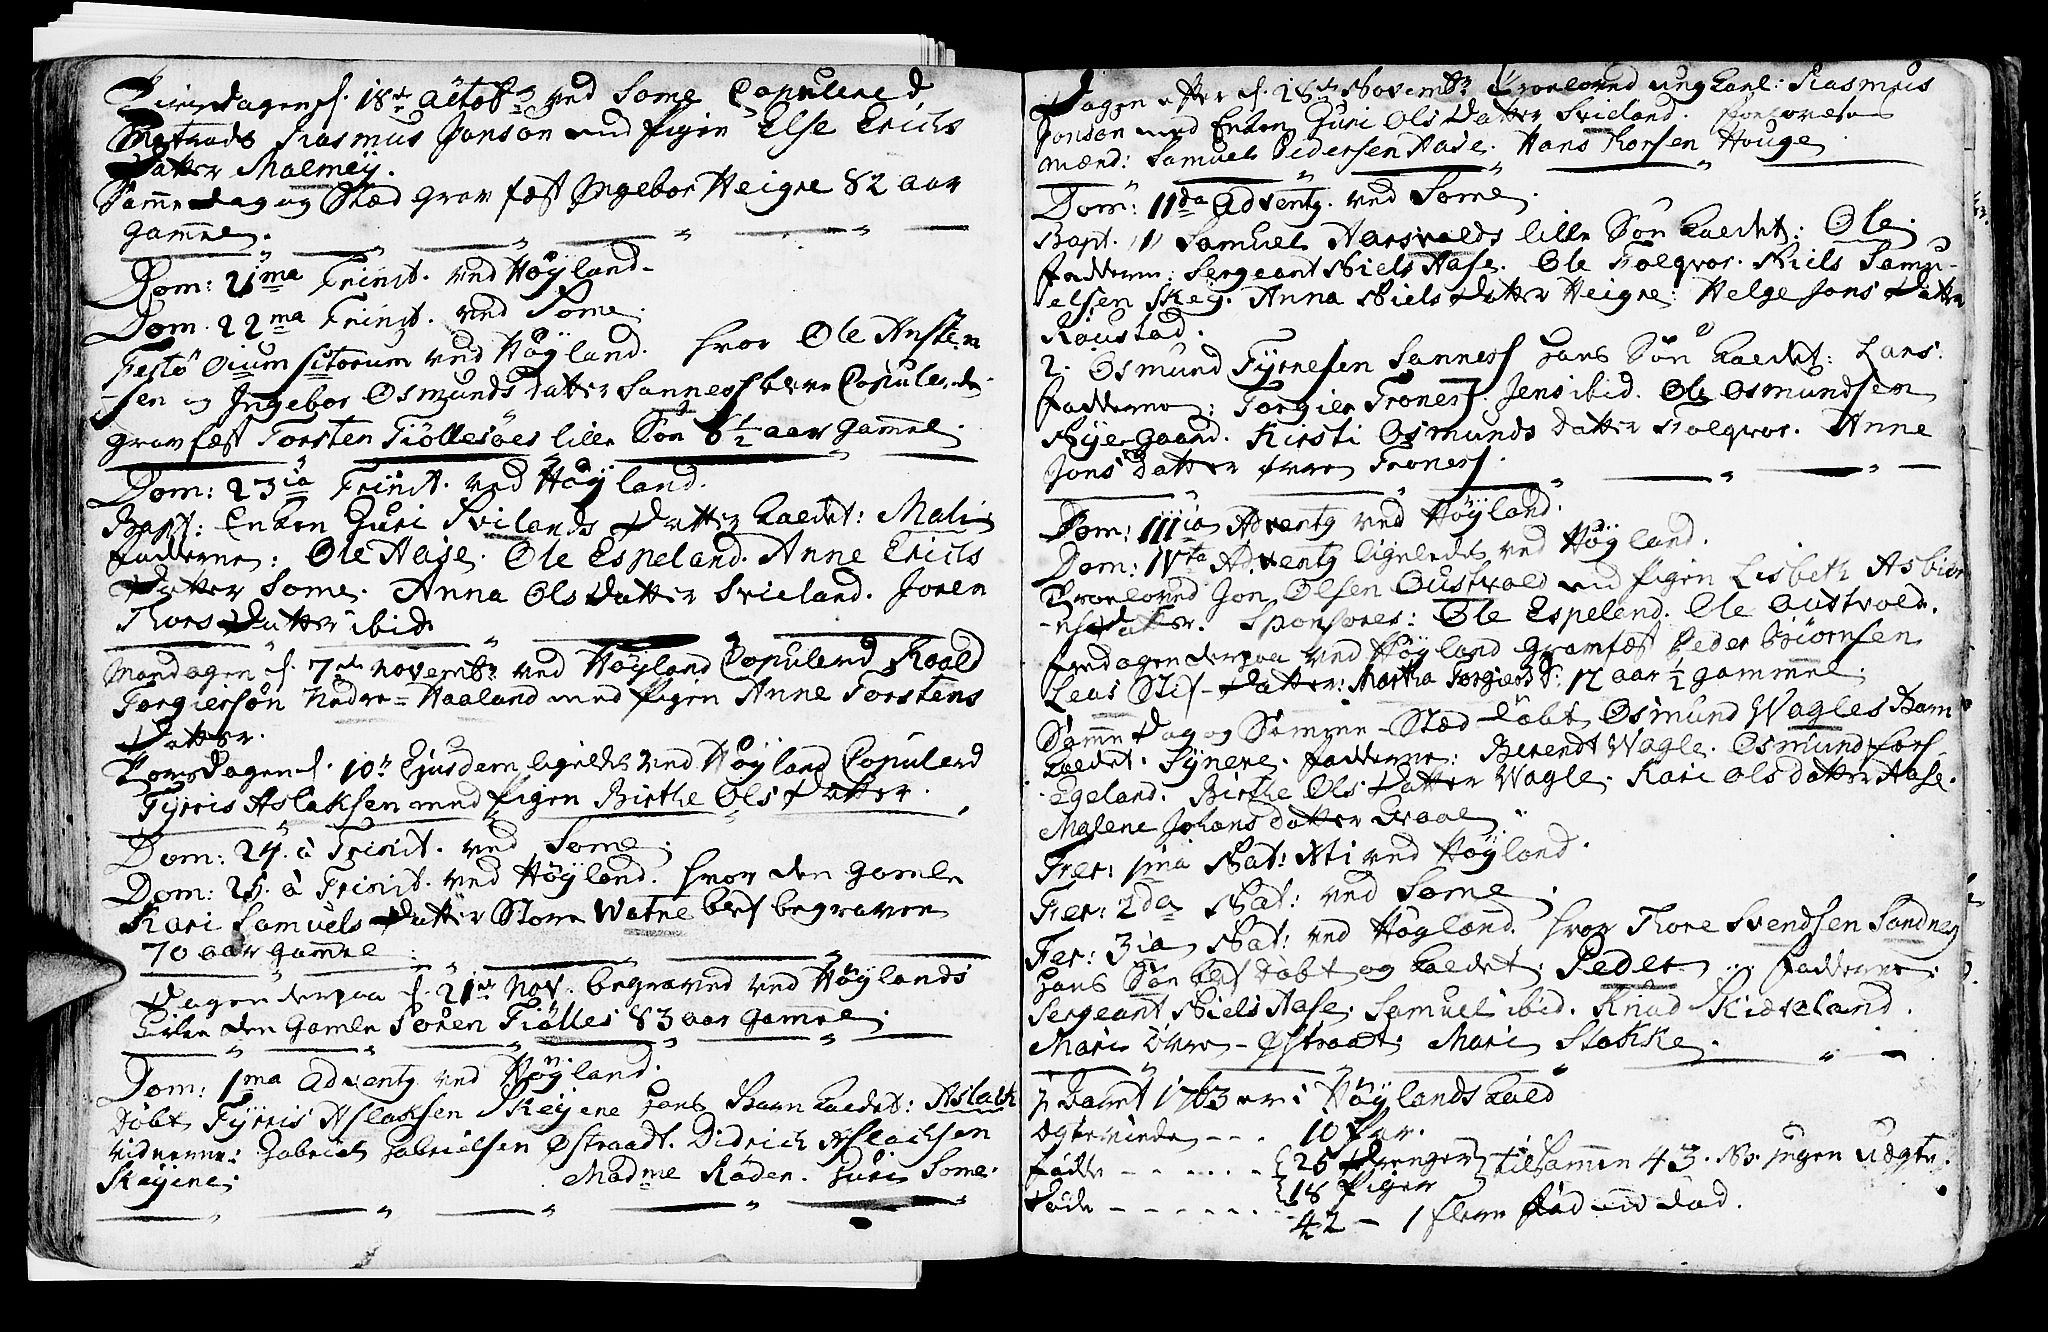 Tirsdagen d. 18de Octobr ved Some Copulered
Rasmus Jonson med Pigen Else Erichs
Datter Malmeÿ.
Samme dag og Stæd Gravfæst Ingebor Heigre 82 aar
gamle.
Dom: 21ma Trinit. ved Høÿland.
Dom. 22ma Trinit. ved Some.
Festo Omn. Sctorum ved Høÿland. hvor Ole Austen
sen og Ingebor Osmunds datter Sanness bleve Copulerede.
Gravfæst Torsten Tiøllesøes lille Søn 6½ aar gamle.
Dom: 23ia Trinit. ved Høÿland.
Bapt: Enken Guri Svilands Datter kaldet: Mali
fadderne: Ole Aase. Ole Espeland. Anne Erichs
Datter Some. Anna Ols Datter Svieland. Joren
Thors Datter ibid.
Mandagen d. 7de Novembr ved Høÿland Copulered Roald
Torgiersøn Nedre-Haaland med Pigen Anne Torstens
Datter.
Torsdagen d. 10de Ejusdem ligeledes ved Høÿland Copulered
Tÿrris Aslaksen med Pigen Birthe Ols Datter.
Dom: 24. à Trinit. ved Some.
Dom: 25. à Trinit. ved Høÿland. hvor den gamle
Kari Samuels Datter Store Watne blef begraven
70 aar gamle.
Dagen derpaa d. 21de Nov. begraved ved Høÿlands
Kirke den gamle Søren Tiølles 83 aar gamle.
Dom: 1ma Adventg ved Høÿland.
Døbt Tÿrris Aslaksen Skeÿene hans Barn kaldet: Aslach
vidnerne: Gabriel Gabrielsen Østraadt. Didrich Aslachsen
Skeÿene. Madme Røden. Guri Some.
Dagen efter d. 28de Novembr Trorloved ung karl: Rasmus
Jonson med Enken Guri Ols Datter Svieland. Forlovelses
mænd: Samuel Pedersen Aase. Hans Thorsen Houge.
Dom: IIda Adventg. ved Some.
Bapt. 1) Samuel Aarsvolds lille Søn kaldet: Ole.
fadderne: Sergeant Niels Aase. Ole Folqvor. Niels Samu-
elsen Skeÿ. Anna Niels Datter Heigre: Helge Jons Datter
Roustad.
2. Osmund Tÿrresen Sanness hans Søn kaldet: Lars.
fadderne: Torgier Troness. Jens ibid. Ole Osmundsen
Nÿegaard. Kirsti Osmunds Datter Folqvor. Anne
Jons Datter øvre Troness.
Dom: IIIia Adventg ved Høÿland.
Dom: IVta Adventg ligeledes ved Høÿland.
Trorloved Jon Olsen Oustvold med Pigen Lisbeth Asbiør
ns Datter. Sponsores: Ole Espeland. Ole Oustvold.
fredagen derpaa ved Høÿland Gravfæst Peder Biørnsen
Leas Stif-Datter: Martha Torgiers D: 17 aar ½ gammel.
Samme Dag og Samme-Stæd døbt Osmund Wagles Barn
kaldet. Sÿnere. fadderne: Berendt Wagle. Osmund Fors
Egeland. Birthe Ols Datter Wagle. Kari Olsdatter Aase.
Malene Johans datter Braal.
Fer: 1ma Nat: Xti ved Høÿland.
Fer: 2da Nat: ved Some.
Fer: 3ia Nat: ved Høÿland. hvor Thore Svendsen Sandnes
hans Søn blef døbt og kaldet: Peder. fadderne:
Sergeant Niels Aase. Samuel ibid. Knud Kiæveland.
Mari Øvre-Østraadt. Mari Stokke.
I Aaret 1763 er i Høÿlands kald
Ægteviede - - . 10 Par.
fødde - - - - - - 25 Drenge 18 Piger tilsammen 43. NB. ingen Uægte.
Døde - - - - - - - 42 - 1 flere fød end død.